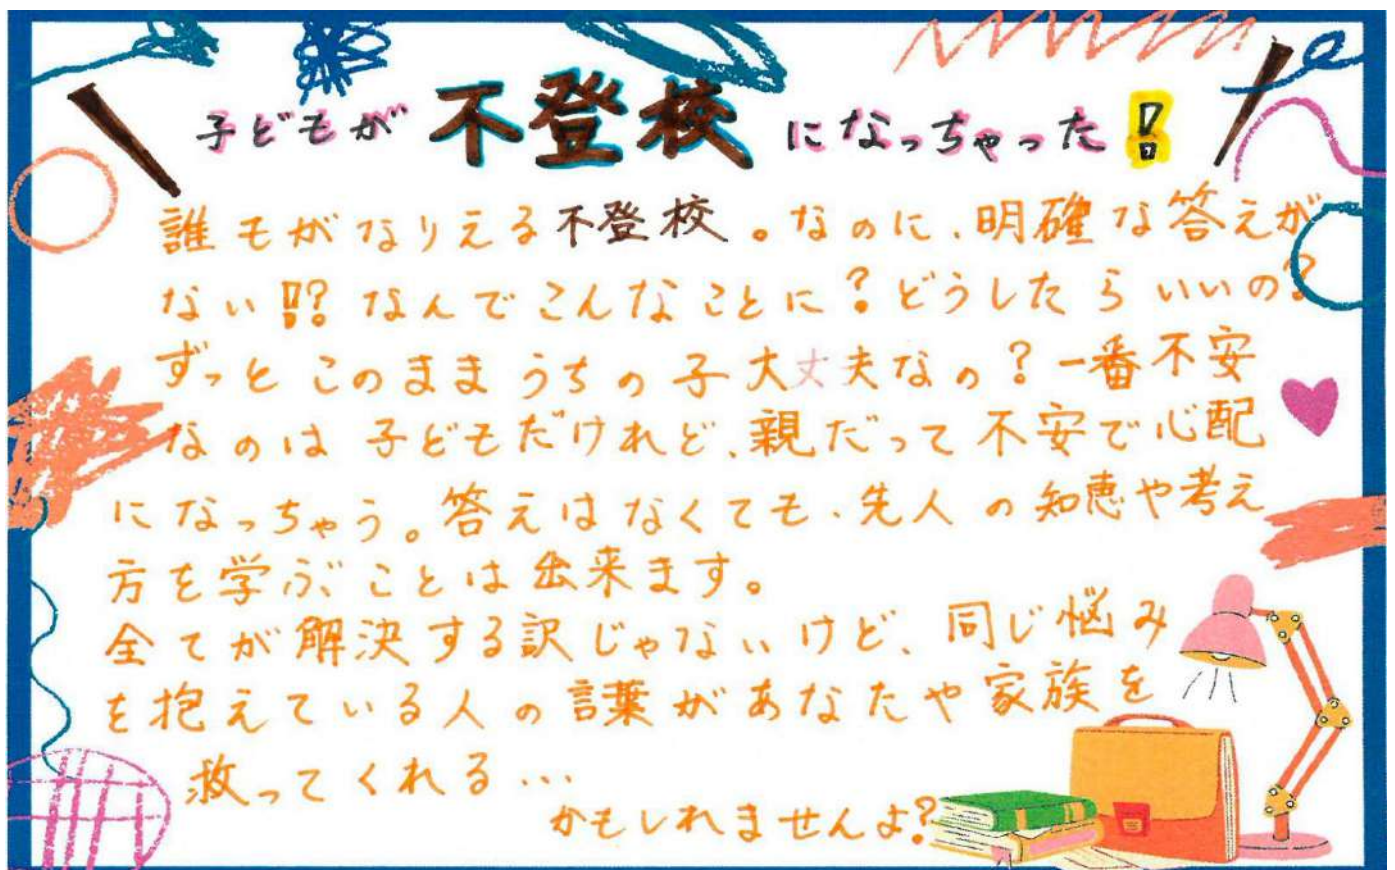 子どもが不登校になっちゃった!!
誰もがなりえる不登校。なのに、明確な答えが
ない!!?なんでこんなことに?どうしたらいいの?
ずっとこのままうちの子大丈夫なの?一番不安
なのは子どもだけれど、親だって不安で心配
になっちゃう。答えはなくても、先人の知恵や考え
方を学ぶことは出来ます。
全てが解決する訳じゃないけど、同じ悩み
を抱えている人の言葉があなたや家族を
救ってくれる…
かもしれませんよ?